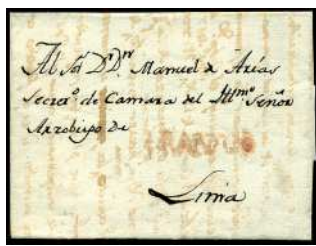 Al Sor. Dr. Dn. Manuel de Arias
Secreo. de Camara del Illmo. Señor
Arzobispo de
Lima